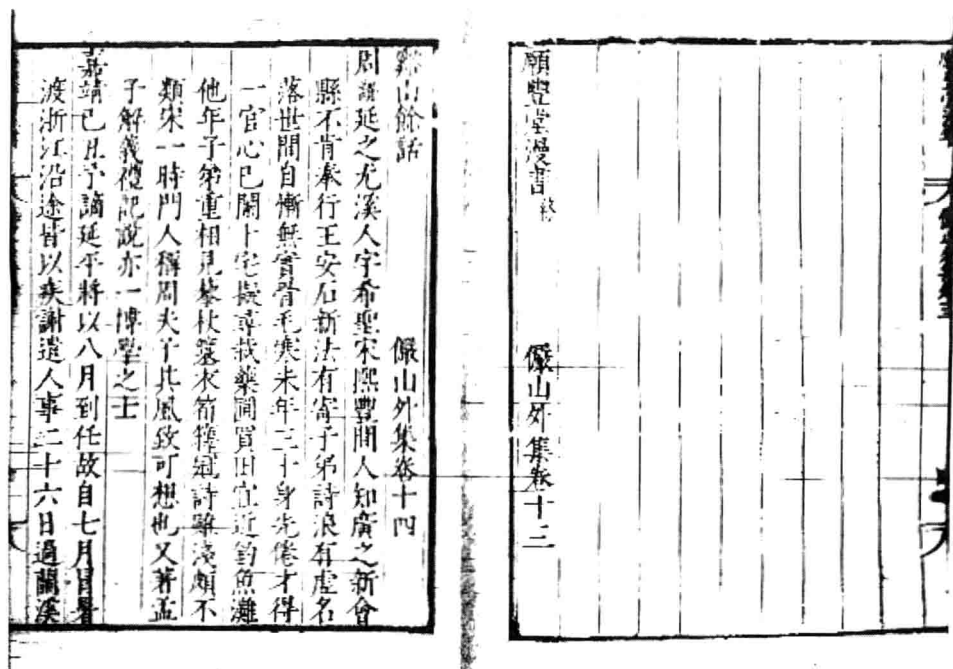 願豐堂漫書終　儼山外集卷十三
谿山餘話　儼山外集卷十四
周諝延之尤溪人字希聖宋熙豐間人知廣之新會
縣不肯奉行王安石新法有寄子弟詩浪有虛名
落世間自慚無實骨毛寒未年三十身先倦才得
一官心已闌卜宅擬尋栽藥澗買田宜近釣魚灘
他年子弟重相見藜杖蓑衣筍籜冠詩雖淺頗不
類宋一時門人稱周夫子其風致可想也又著孟
子解義禮記說亦一博學之士
嘉靖己丑予謫延平將以八月到任故自七月冒暑
渡浙江沿途皆以疾謝遣人事二十六日過蘭溪